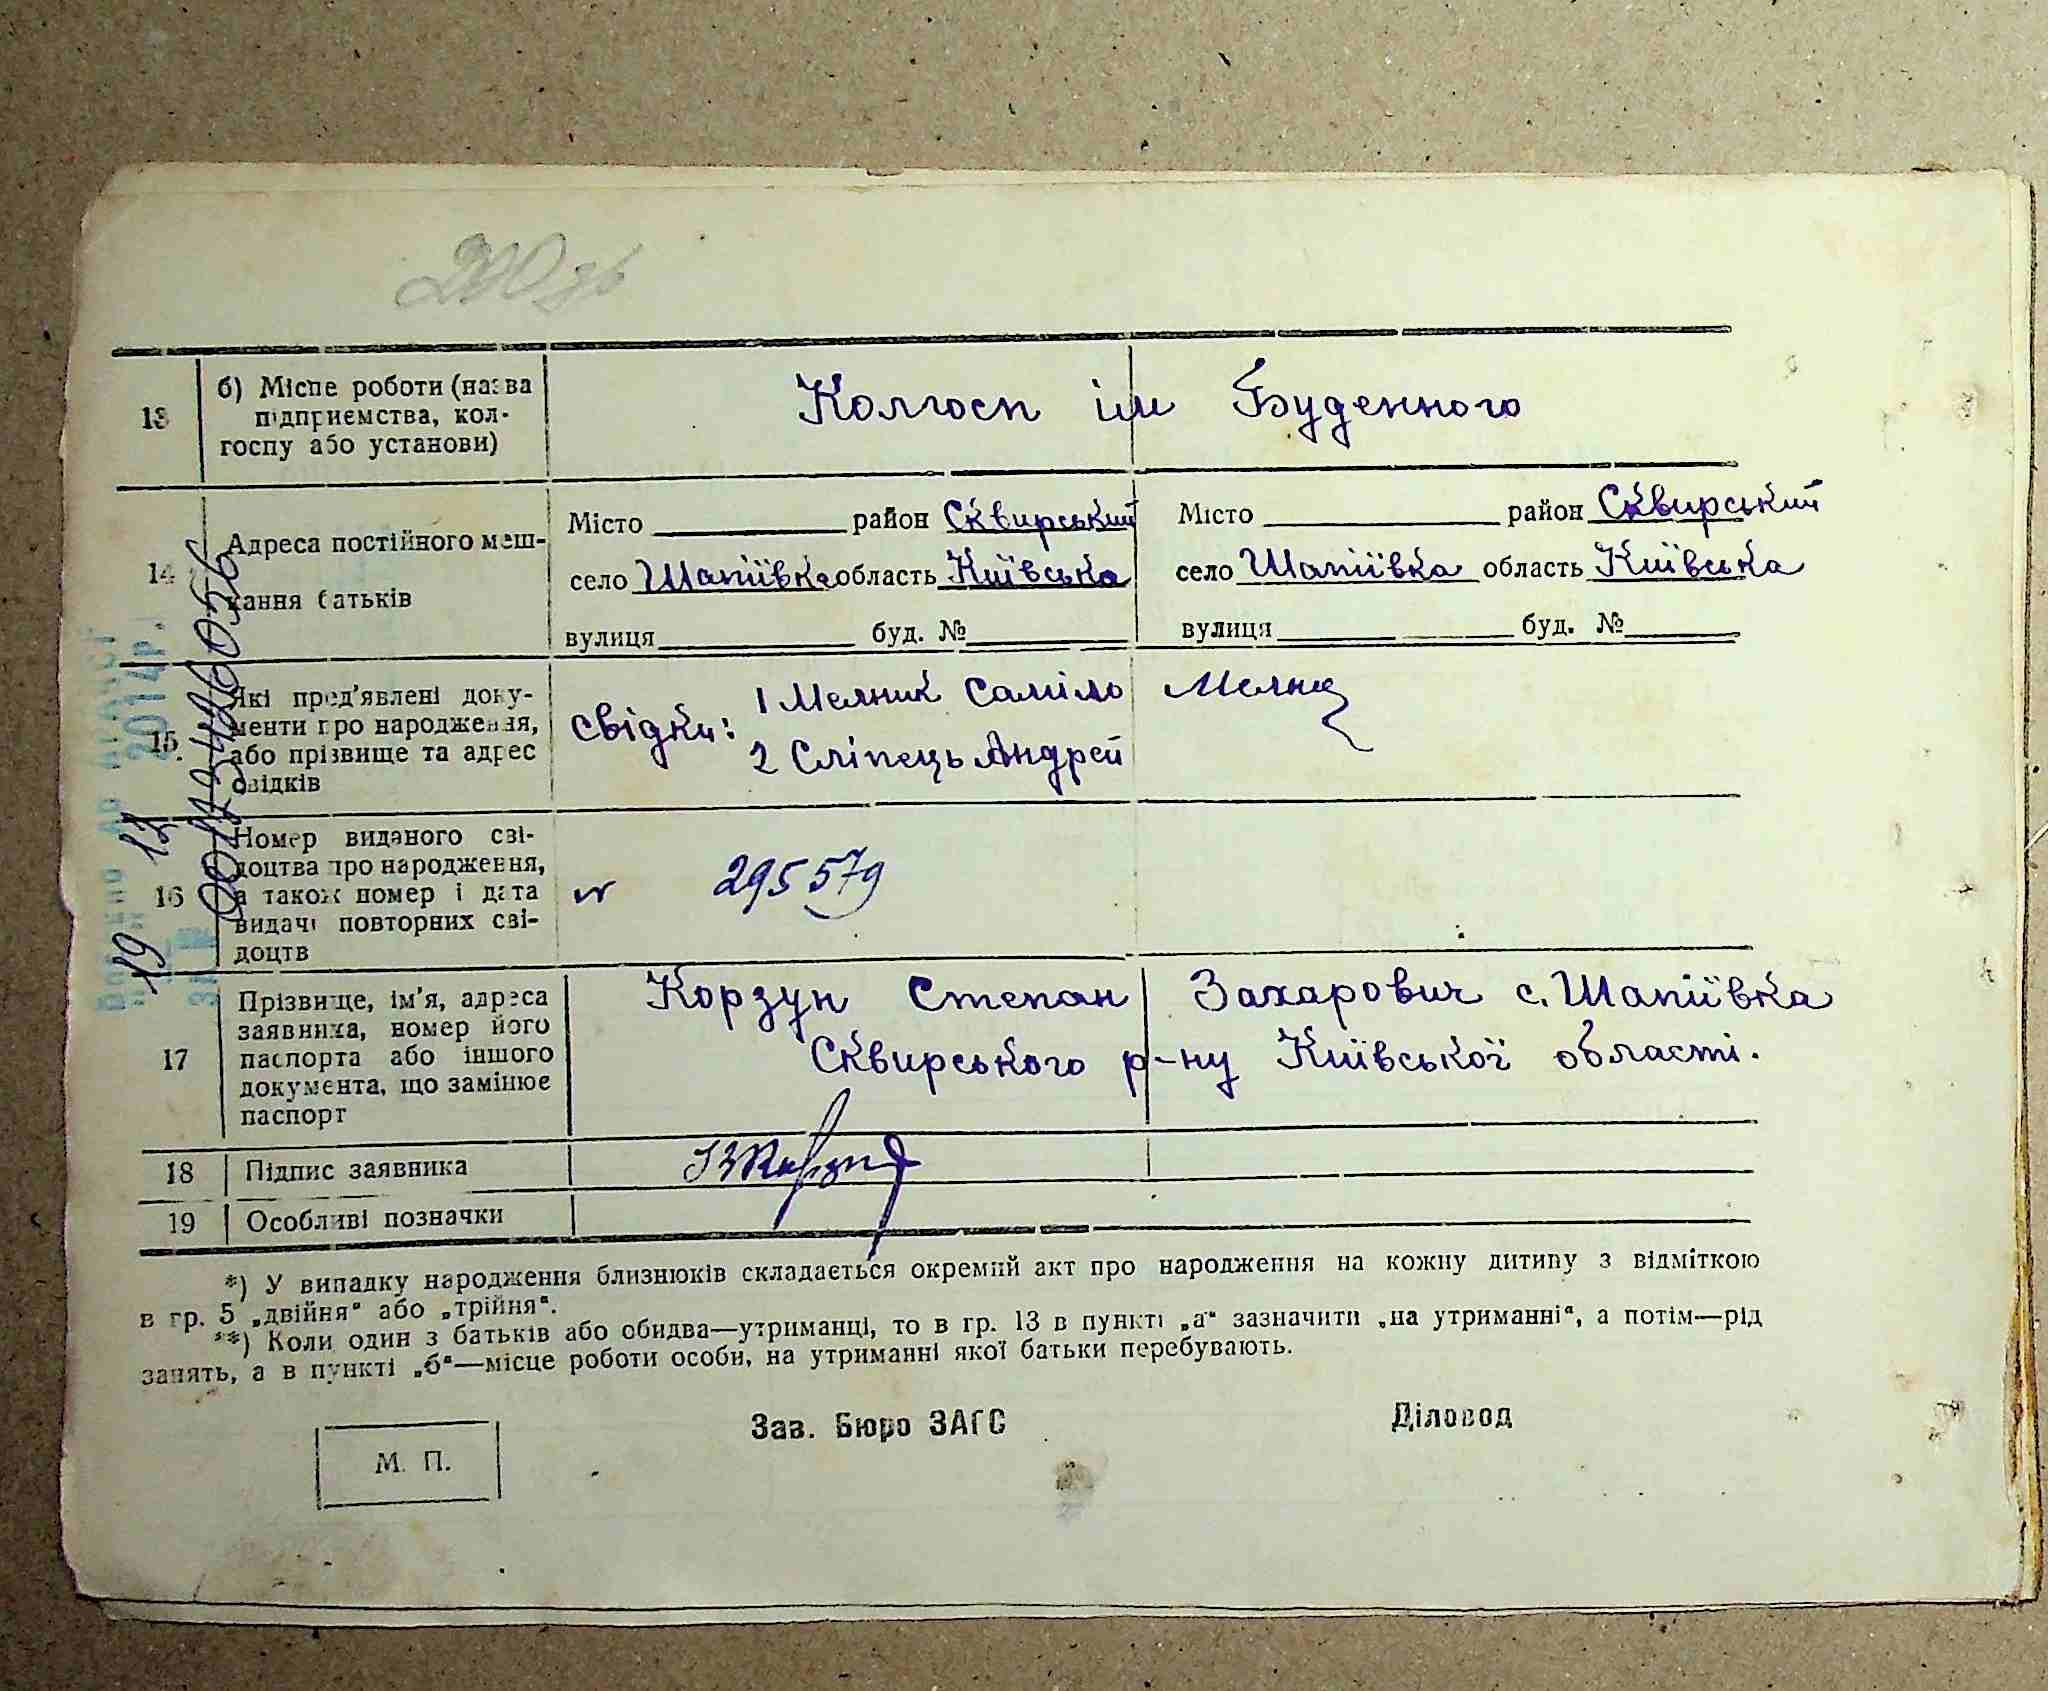 230 зв
13 б) Місце роботи (назва підприємства, кол-
госпу або установи)
Колгосп ім Буденного
14 Адреса постійного меш-
кання батьків
Місто район Сквирський
село Шапіївка область Київська
вулиця буд. №
Місто район Сквирський
село Шапіївка область Київська
вулиця буд. №
15 Які пред'явлені доку-
менти про народження,
або прізвище та адрес
свідків
Свідки: 1 Мелник Саміло
2 Сліпець Андрей
16 Номер виданого сві-
доцтва про народження,
а також номер і дата
видачі повторних сві-
доцтв
№ 295579
17 Прізвище, ім'я, адреса
заявника, номер його
паспорта або іншого
документа, що замінює
паспорт
Корзун Степан Захарович с. Шапіївка
Сквирського р-ну Київської області.
18 Підпис заявника
19 Особливі позначки
*) У випадку народження близнюків складається окремий акт про народження на кожну дитину з відміткою
в гр. 5 „двійня“ або „трійня“.
**) Коли один з батьків або обидва—утриманці, то в гр. 13 в пункті „а“ зазначити „на утриманні“, а потім—рід
занять, а в пункті „б“—місце роботи особи, на утриманні якої батьки перебувають.
М. П.
Зав. Бюро ЗАГС
Діловод
19 12 2014р.